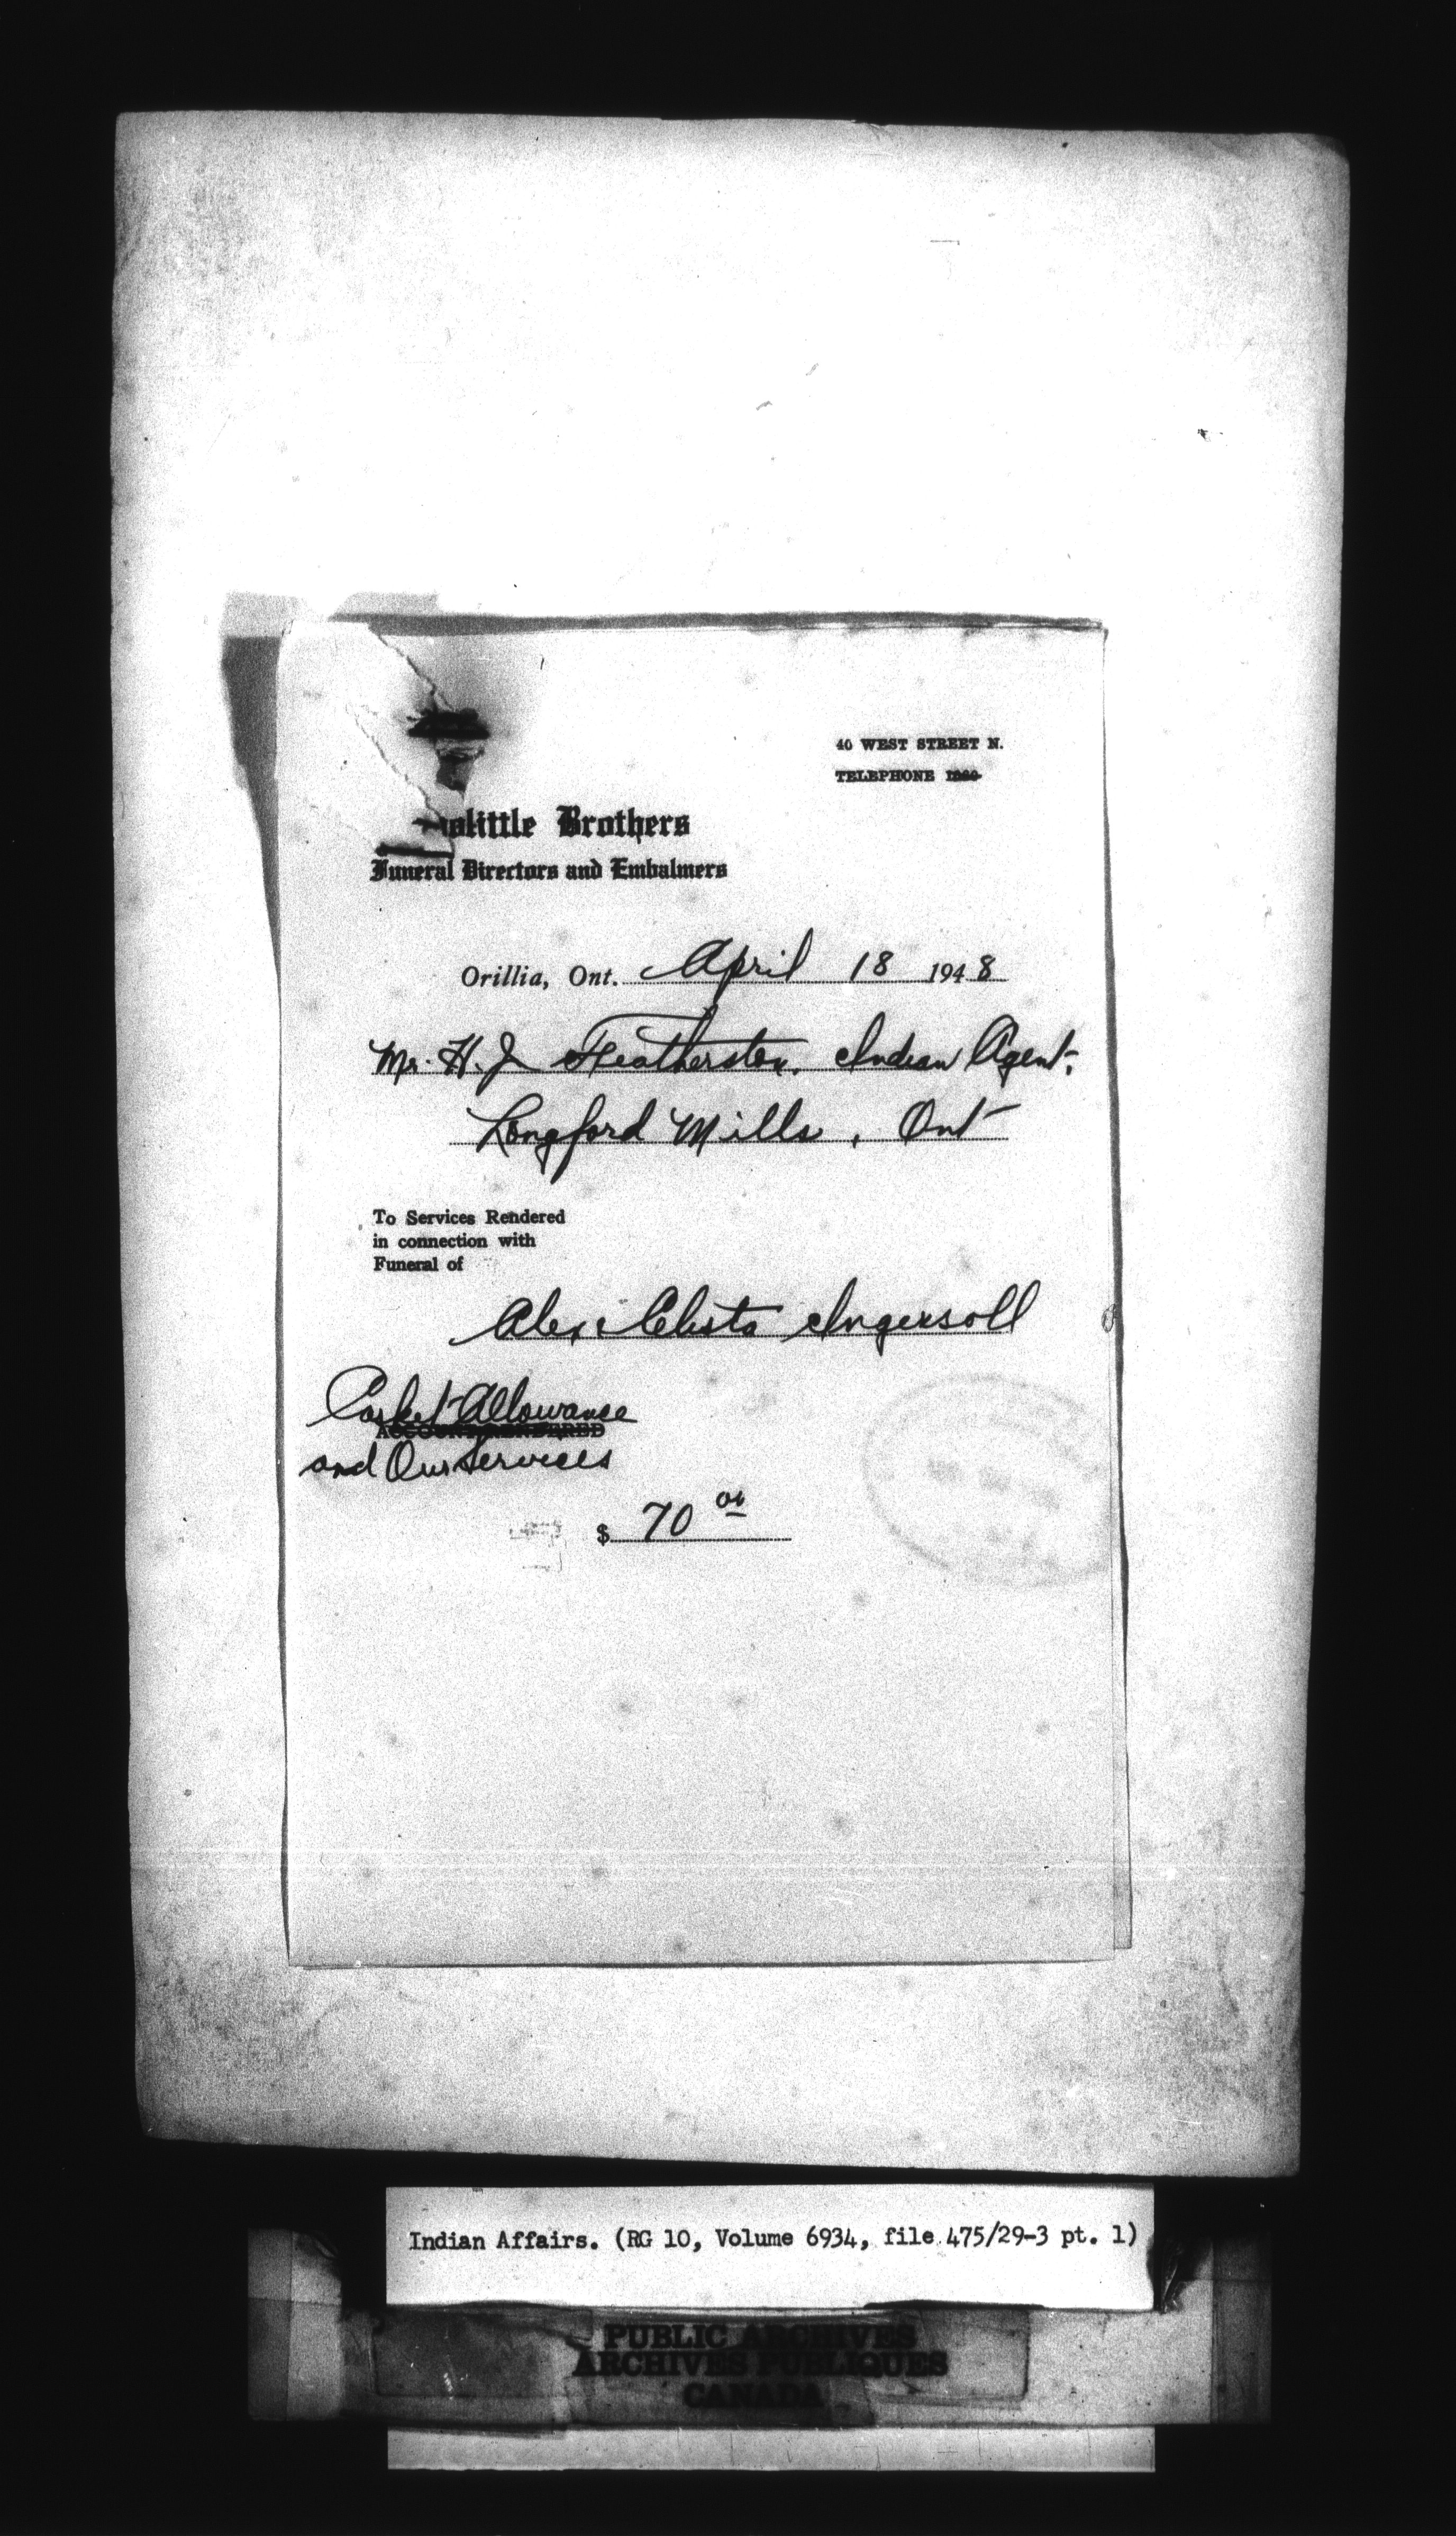 40 WEST STREET N.
TELEPHONE
olittle Brothers
Funeral Directors and Embalmers
Orillia, Ont. April 18 1948
Mr. H. J. Featherston, Indian Agent,
Longford Mills, Ont
To Services Rendered
in connection with
Funeral of
Alex Ingersoll
Casket Allowance
ACCOUNT RENDERED
and Our Services
$ 70 00
Indian Affairs. (RG 10, Volume 6934, file 475/29-3 pt. 1)
PUBLIC ARCHIVES
ARCHIVES PUBLIQUES
CANADA